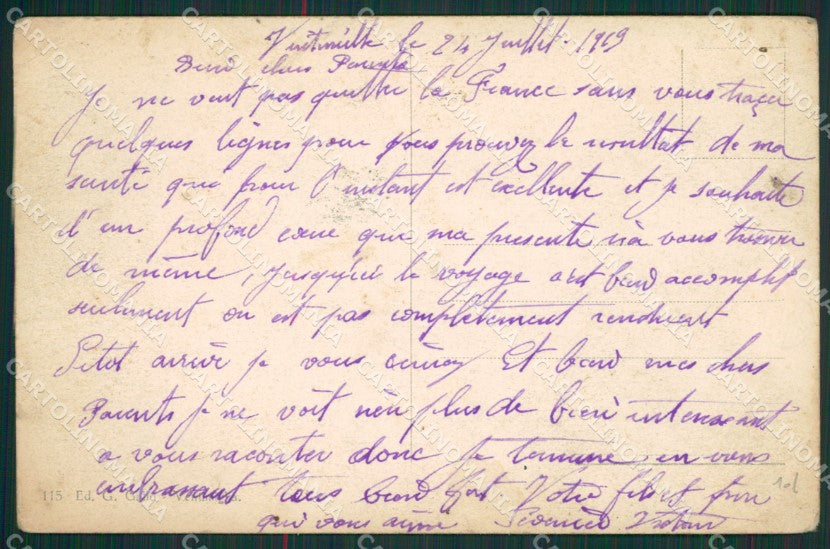 Vintimille le 24 Juillet 1919
Bien chers Parents
Je ne veut pas quitter la France sans vous traçer
quelques lignes pour vous prouvez le resultat de ma
santé que pour l'instant est excellente et je souhaite
d'un profond cœur que ma presente ira vous trouver
de même, Jusqu'ici le voyage est bien accomplit
seulement on est pas completement rendu
Sitot arrivé je vous Et bien mes chers
Parents je ne voit rien plus de bien interessant
a vous raconter donc je termine en vous
embrassant tous bien fort Votre fils et frere
qui vous aime
115 Ed. G.
CARTOLINOMANIA